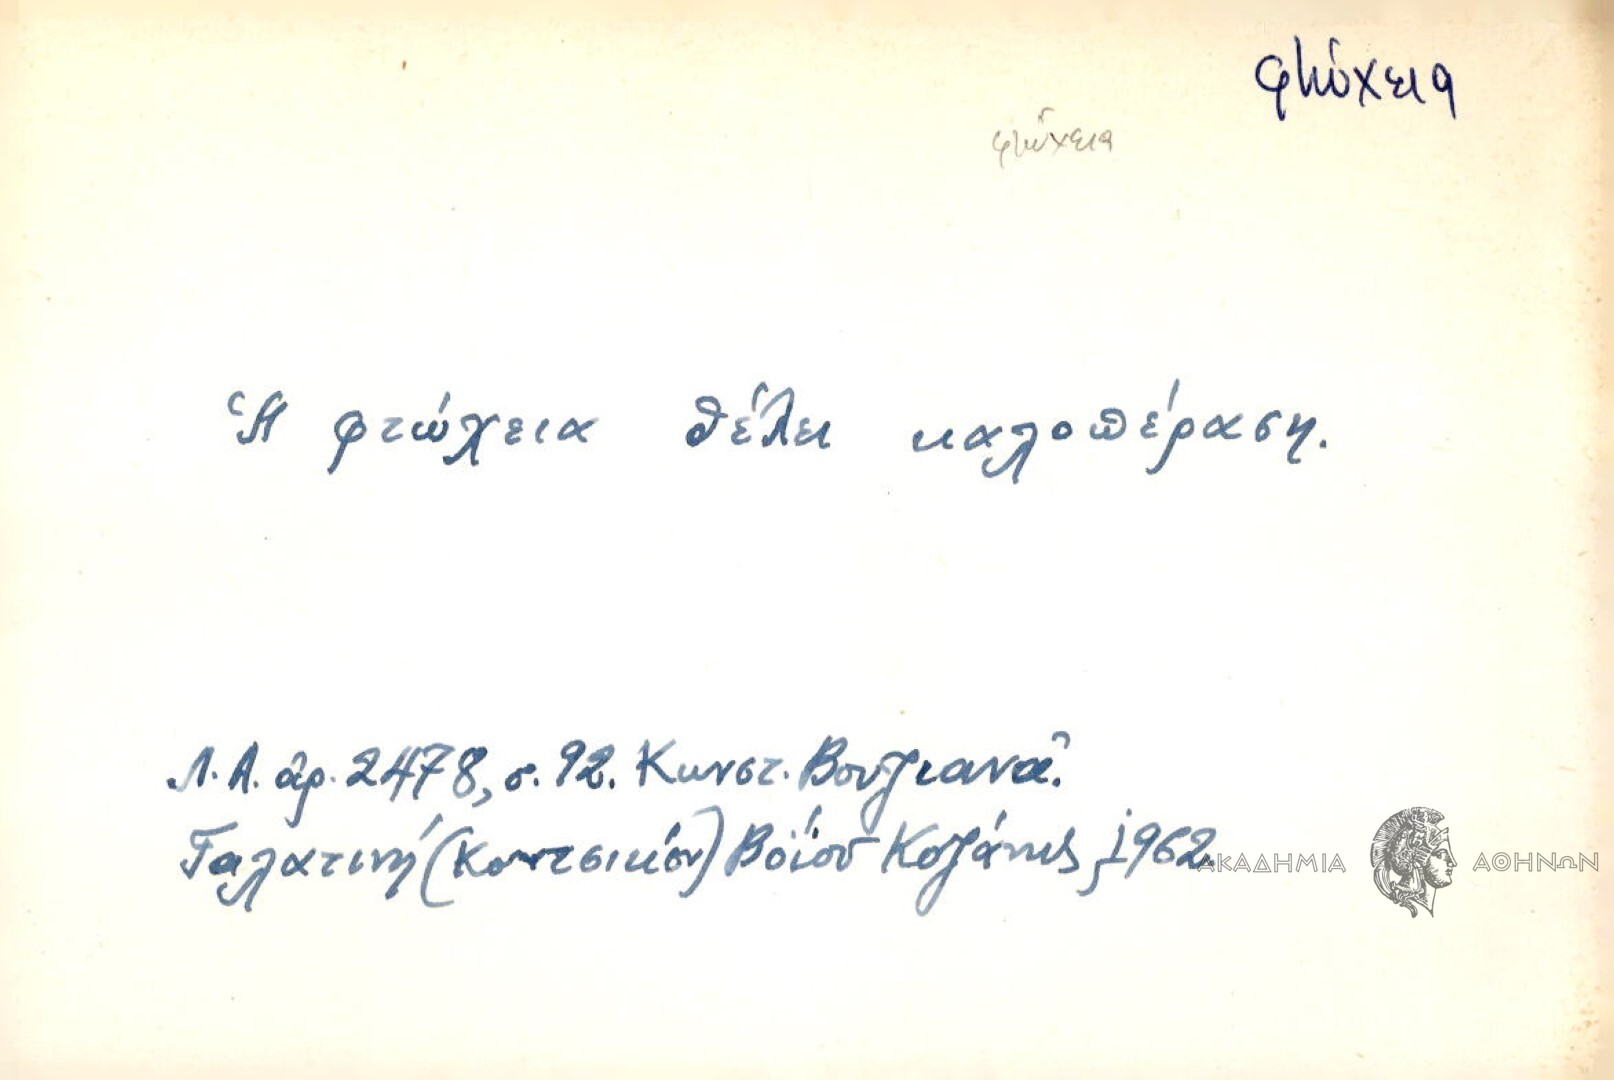 φτώχεια
φτώχεια
Ἡ φτώχεια θέλει καλοπέραση.
Λ.Α. ἀρ. 2478, σ. 92. Κωνστ. Βουζιανᾶ.
Γαλατινή (Κοντσικόν) Βοΐου Κοζάνης, 1962.
ΑΚΑΔΗΜΙΑ ΑΘΗΝΩΝ